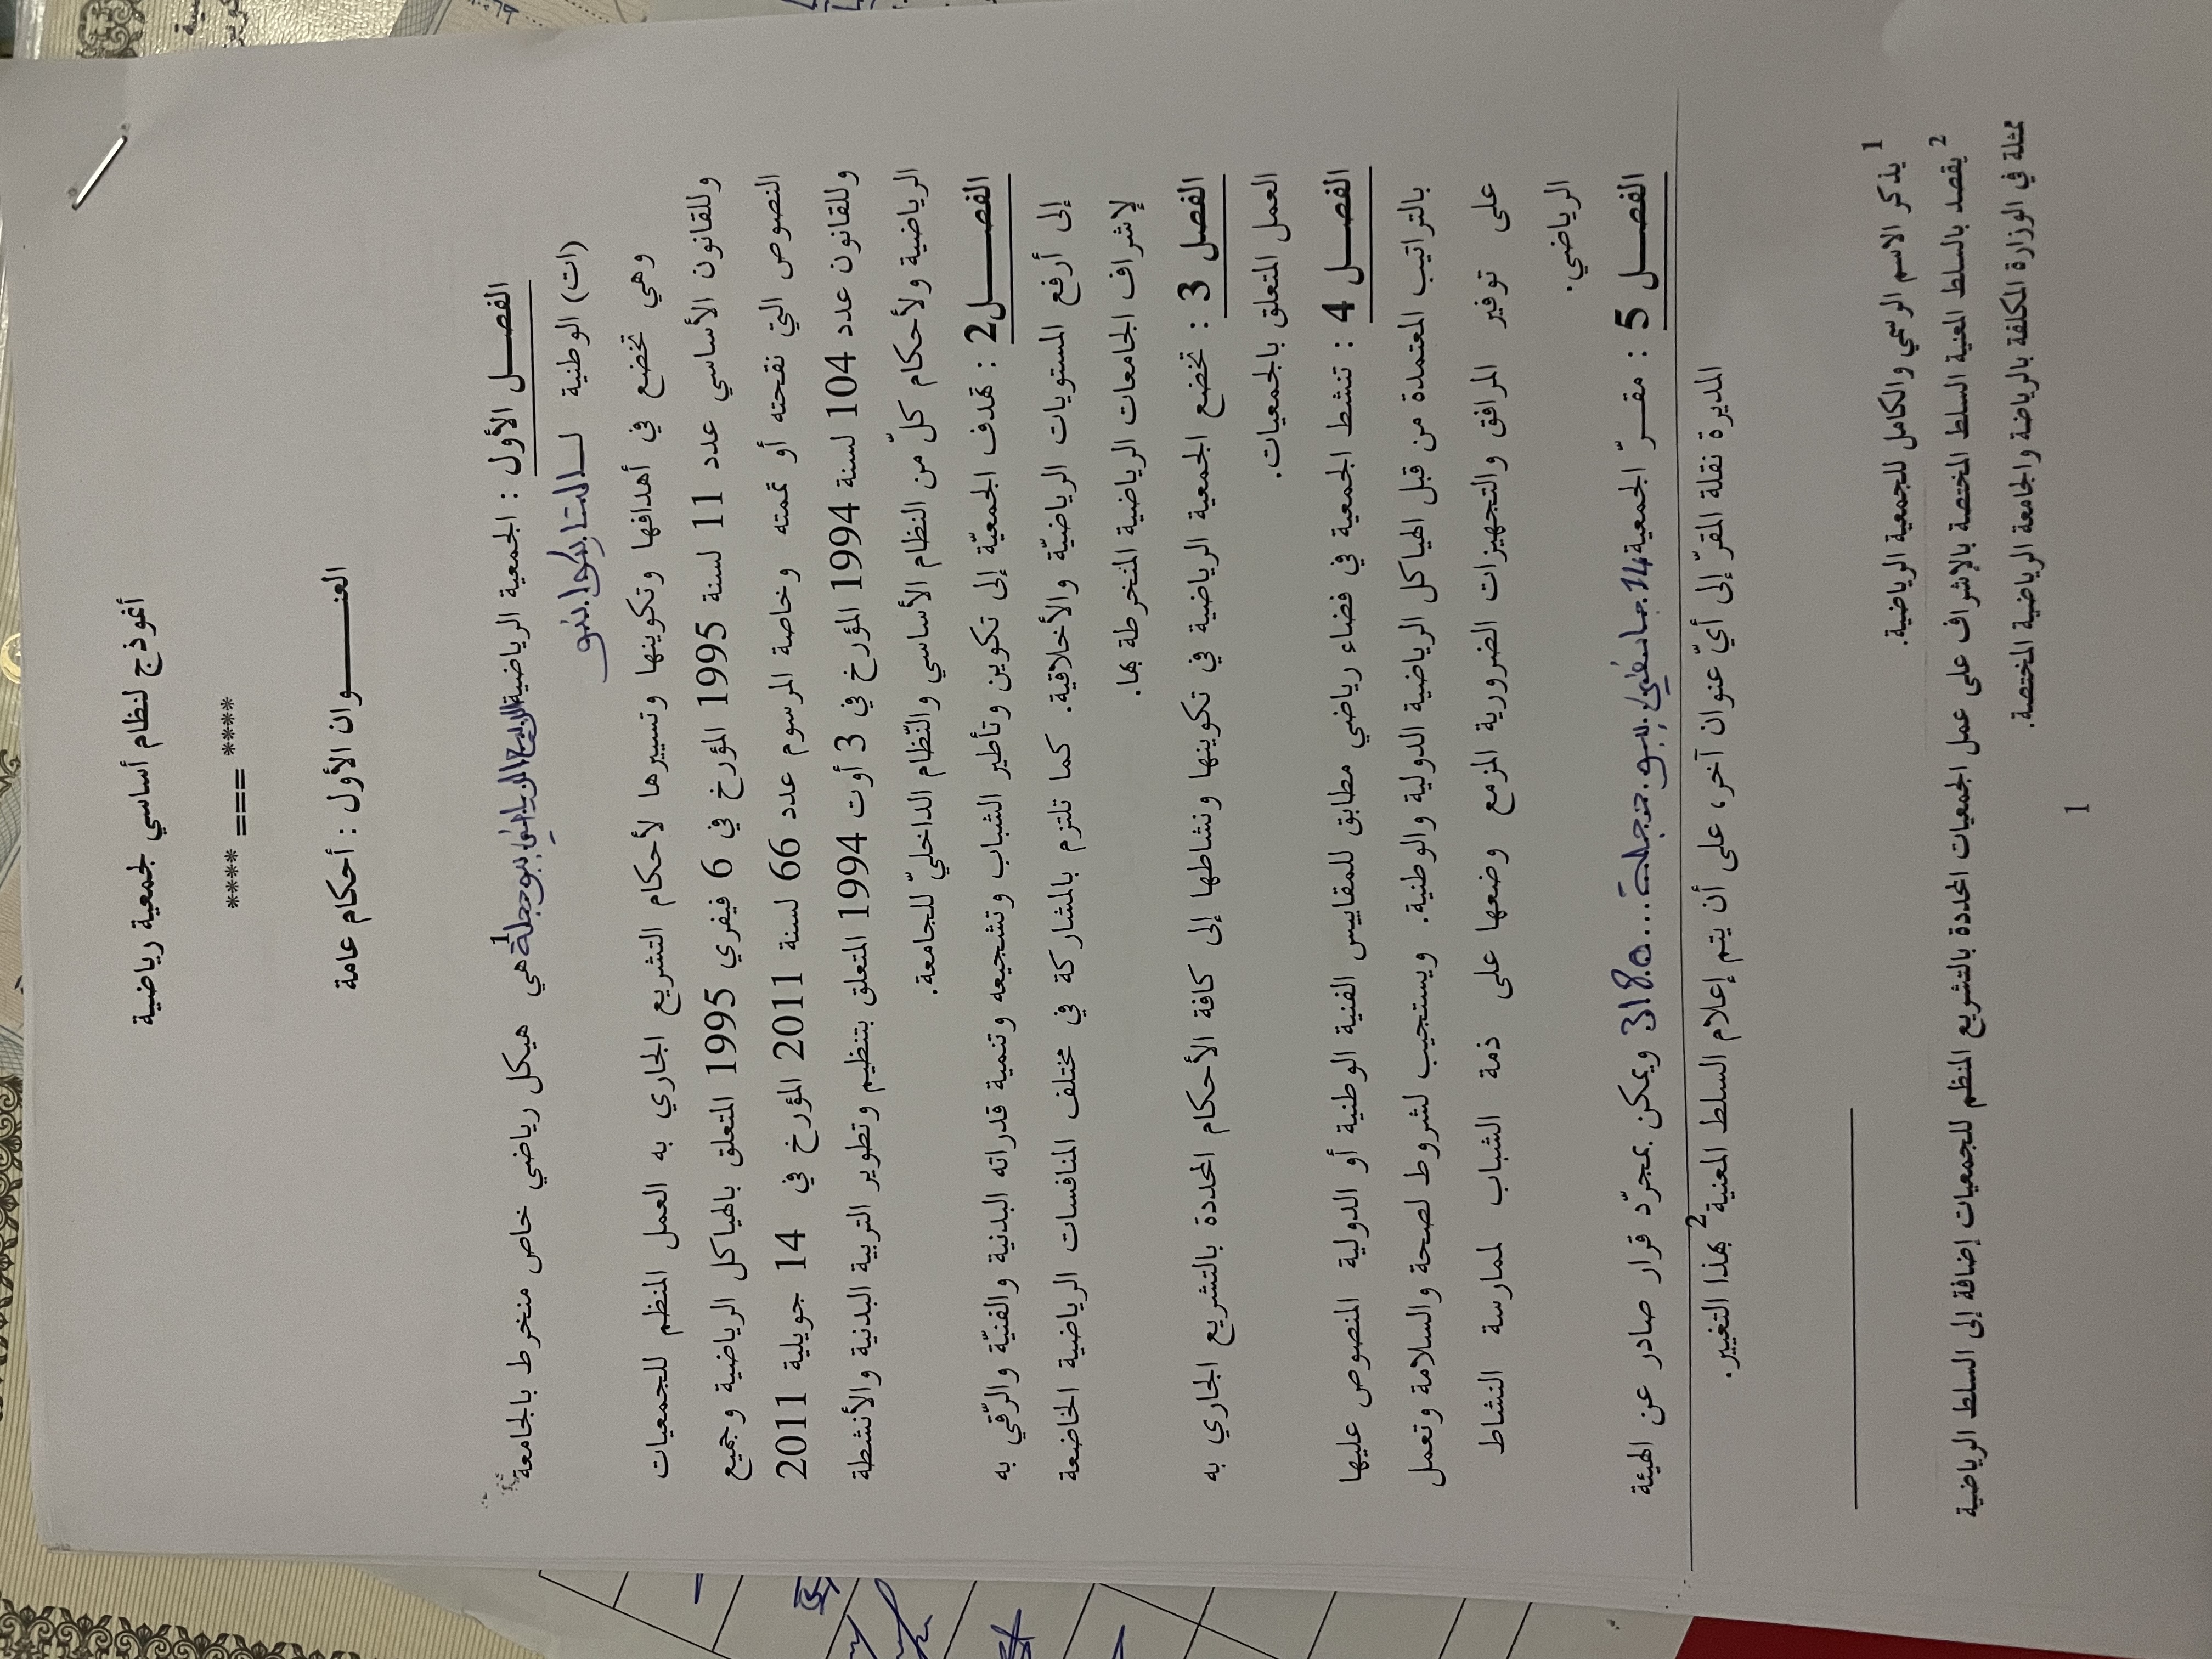 أنموذج لنظام أساسي لجمعية رياضية
**** === ****
العنـــــــوان الأول : أحكام عامة
الفصـــل الأول : الجمعية الرياضية الربيع الرياضي ببوحجلة1 هي هيكل رياضي خاص منخرط بالجامعة
(ات) الوطنية لـــ التايكواندو
وهي تخضع في أهدافها وتكوينها وتسييرها لأحكام التشريع الجاري به العمل المنظم للجمعيات
وللقانون الأساسي عدد 11 لسنة 1995 المؤرخ في 6 فيفري 1995 المتعلق بالهياكل الرياضية وجميع
النصوص التي نقحته أو تممته وخاصة المرسوم عدد 66 لسنة 2011 المؤرخ في 14 جويلية 2011
وللقانون عدد 104 لسنة 1994 المؤرخ في 3 أوت 1994 المتعلق بتنظيم وتطوير التربية البدنية والأنشطة
الرياضية ولأحكام كلّ من النظام الأساسي والنّظام الداخليّ للجامعة.
الفصـــــل2 : تهدف الجمعيّة إلى تكوين وتأطير الشباب وتشجيعه وتنمية قدراته البدنية والفنيّة والرّقي به
إلى أرفع المستويات الرياضيّة والأخلاقية. كما تلتزم بالمشاركة في مختلف المنافسات الرياضية الخاضعة
لإشراف الجامعات الرياضية المنخرطة بها.
الفصل 3 : تخضع الجمعية الرياضية في تكوينها ونشاطها إلى كافة الأحكام المحددة بالتشريع الجاري به
العمل المتعلق بالجمعيات.
الفصـــل 4 : تنشط الجمعية في فضاء رياضي مطابق للمقاييس الفنية الوطنية أو الدولية المنصوص عليها
بالتراتيب المعتمدة من قبل الهياكل الرياضية الدولية والوطنية. ويستجيب لشروط لصحة والسلامة وتعمل
على توفير المرافق والتجهيزات الضرورية المزمع وضعها على ذمة الشباب لممارسة النشاط
الرياضي.
الفصـــل 5 : مقــرّ الجمعية 14 جانفي بوحجلة 3180 ويمكن بمجرّد قرار صادر عن الهيئة
المديرة نقلة المقرّ إلى أيّ عنوان آخر، على أن يتم إعلام السلط المعنية2 بهذا التغيير.
1 يذكر الاسم الرسمي والكامل للجمعية الرياضية.
2 يقصد بالسلط المعنية السلط المختصة بالإشراف على عمل الجمعيات المحددة بالتشريع المنظم للجمعيات إضافة إلى السلط الرياضية
ممثلة في الوزارة المكلفة بالرياضة والجامعة الرياضية المختصة.
1